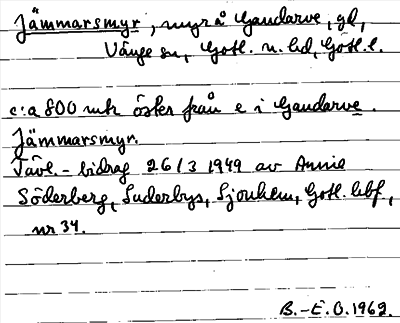 Jämmarsmyr, myr å Gandarve, gd,
Vänge sn, Gotl. n. hd, Gotl. l.
c:a 800 mtr öster från e i Gandarve.
Jämmarsmyr.
Tävl.-bidrag 26/3 1949 av Annie
Söderberg, Suderbys, Sjonhem, Gotl. hbf,
nr 34.
B.-E. O. 1962.